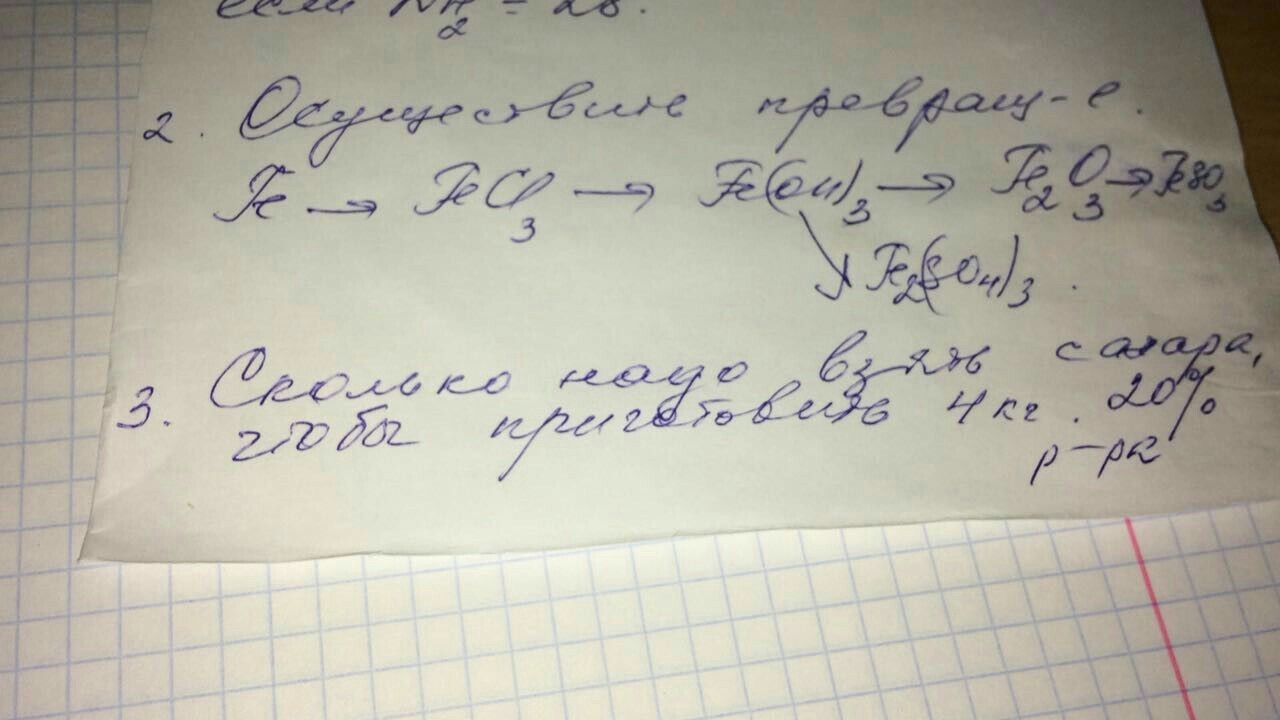 если
2
= 28.
2. Осуществить превращ-е.
Fe → FeCl₃ → Fe(OH)₃ → Fe₂O₃ → FeSO₃
↘ Fe₂(SO₄)₃.
3. Сколько надо взять сахара,
чтобы приготовить 4 кг. 20%
р-ра